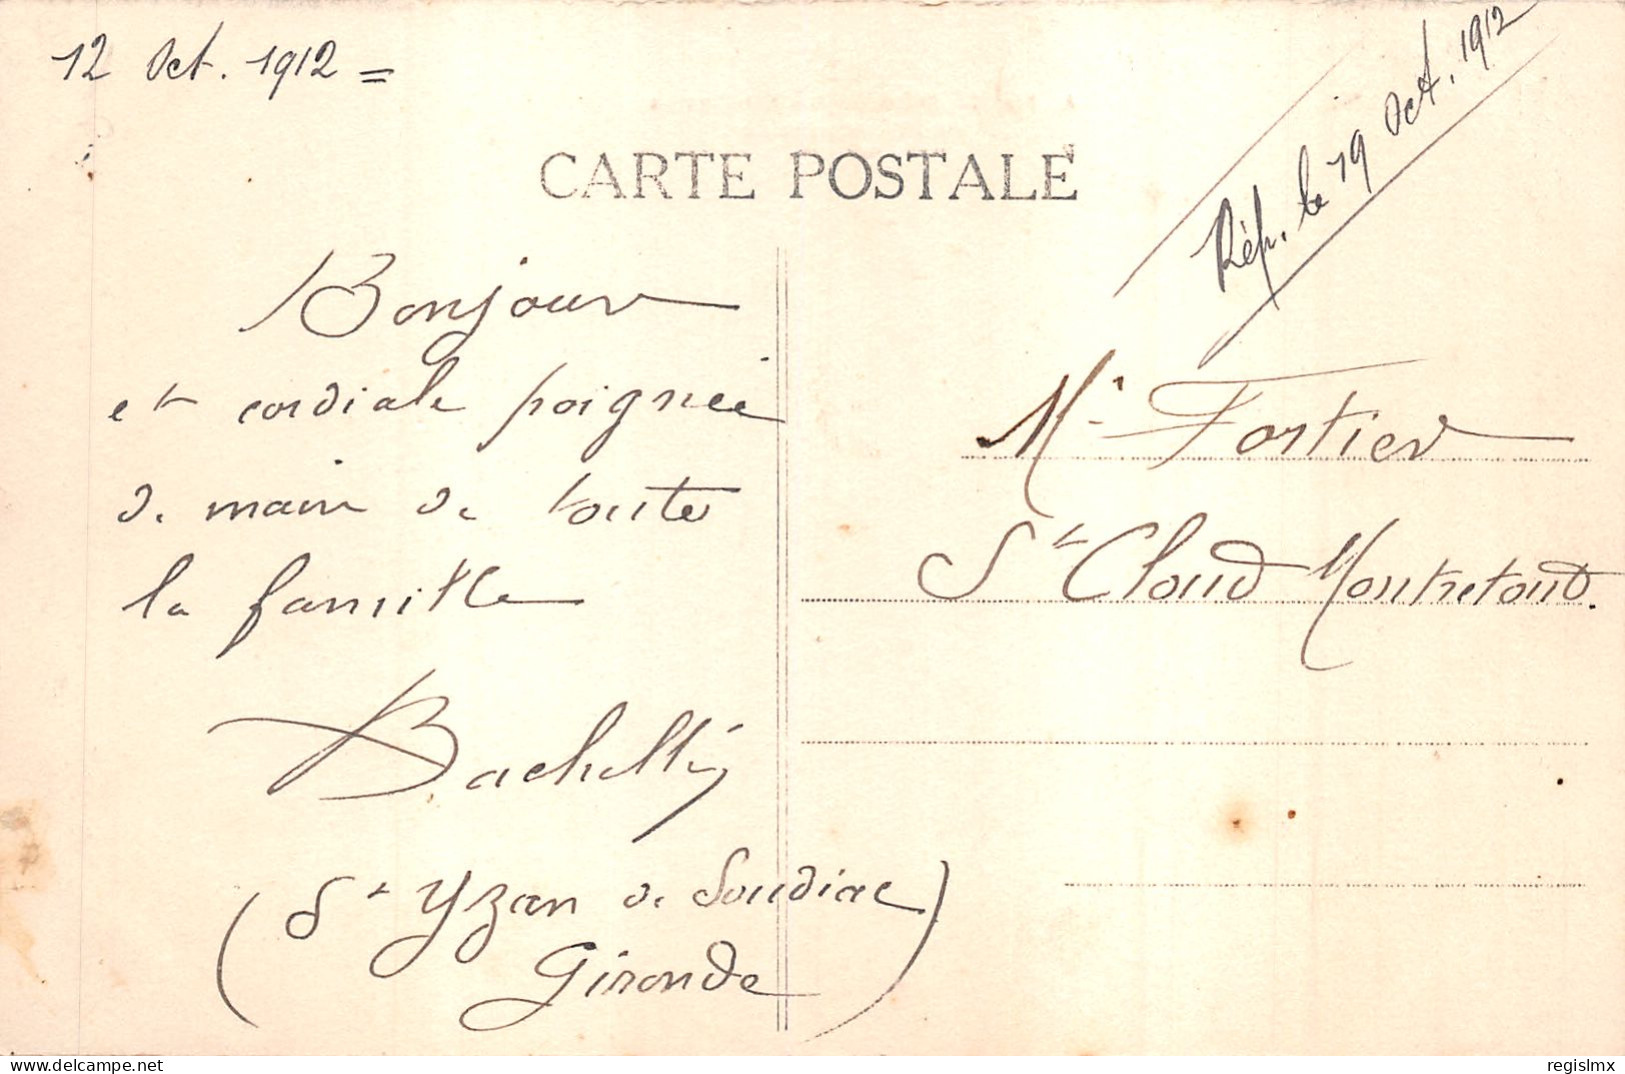 12 Oct. 1912 =
Rép. le 19 Oct. 1912
CARTE POSTALE
Bonjour
et cordiale poignée
de main de toute
la famille
(St Yzan de Soudiac
Gironde)
Mr Fortier
St Cloud Montretout.
regislmx